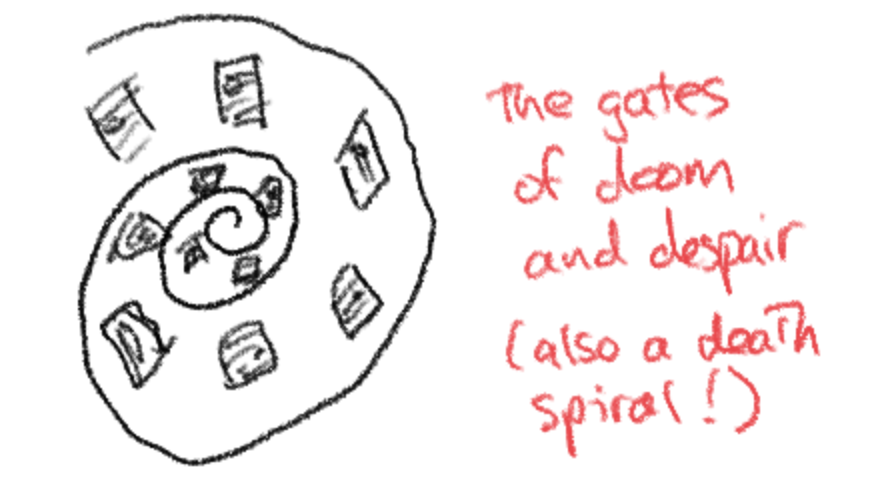 The gates
of doom
and despair
(also a death
spiral!)